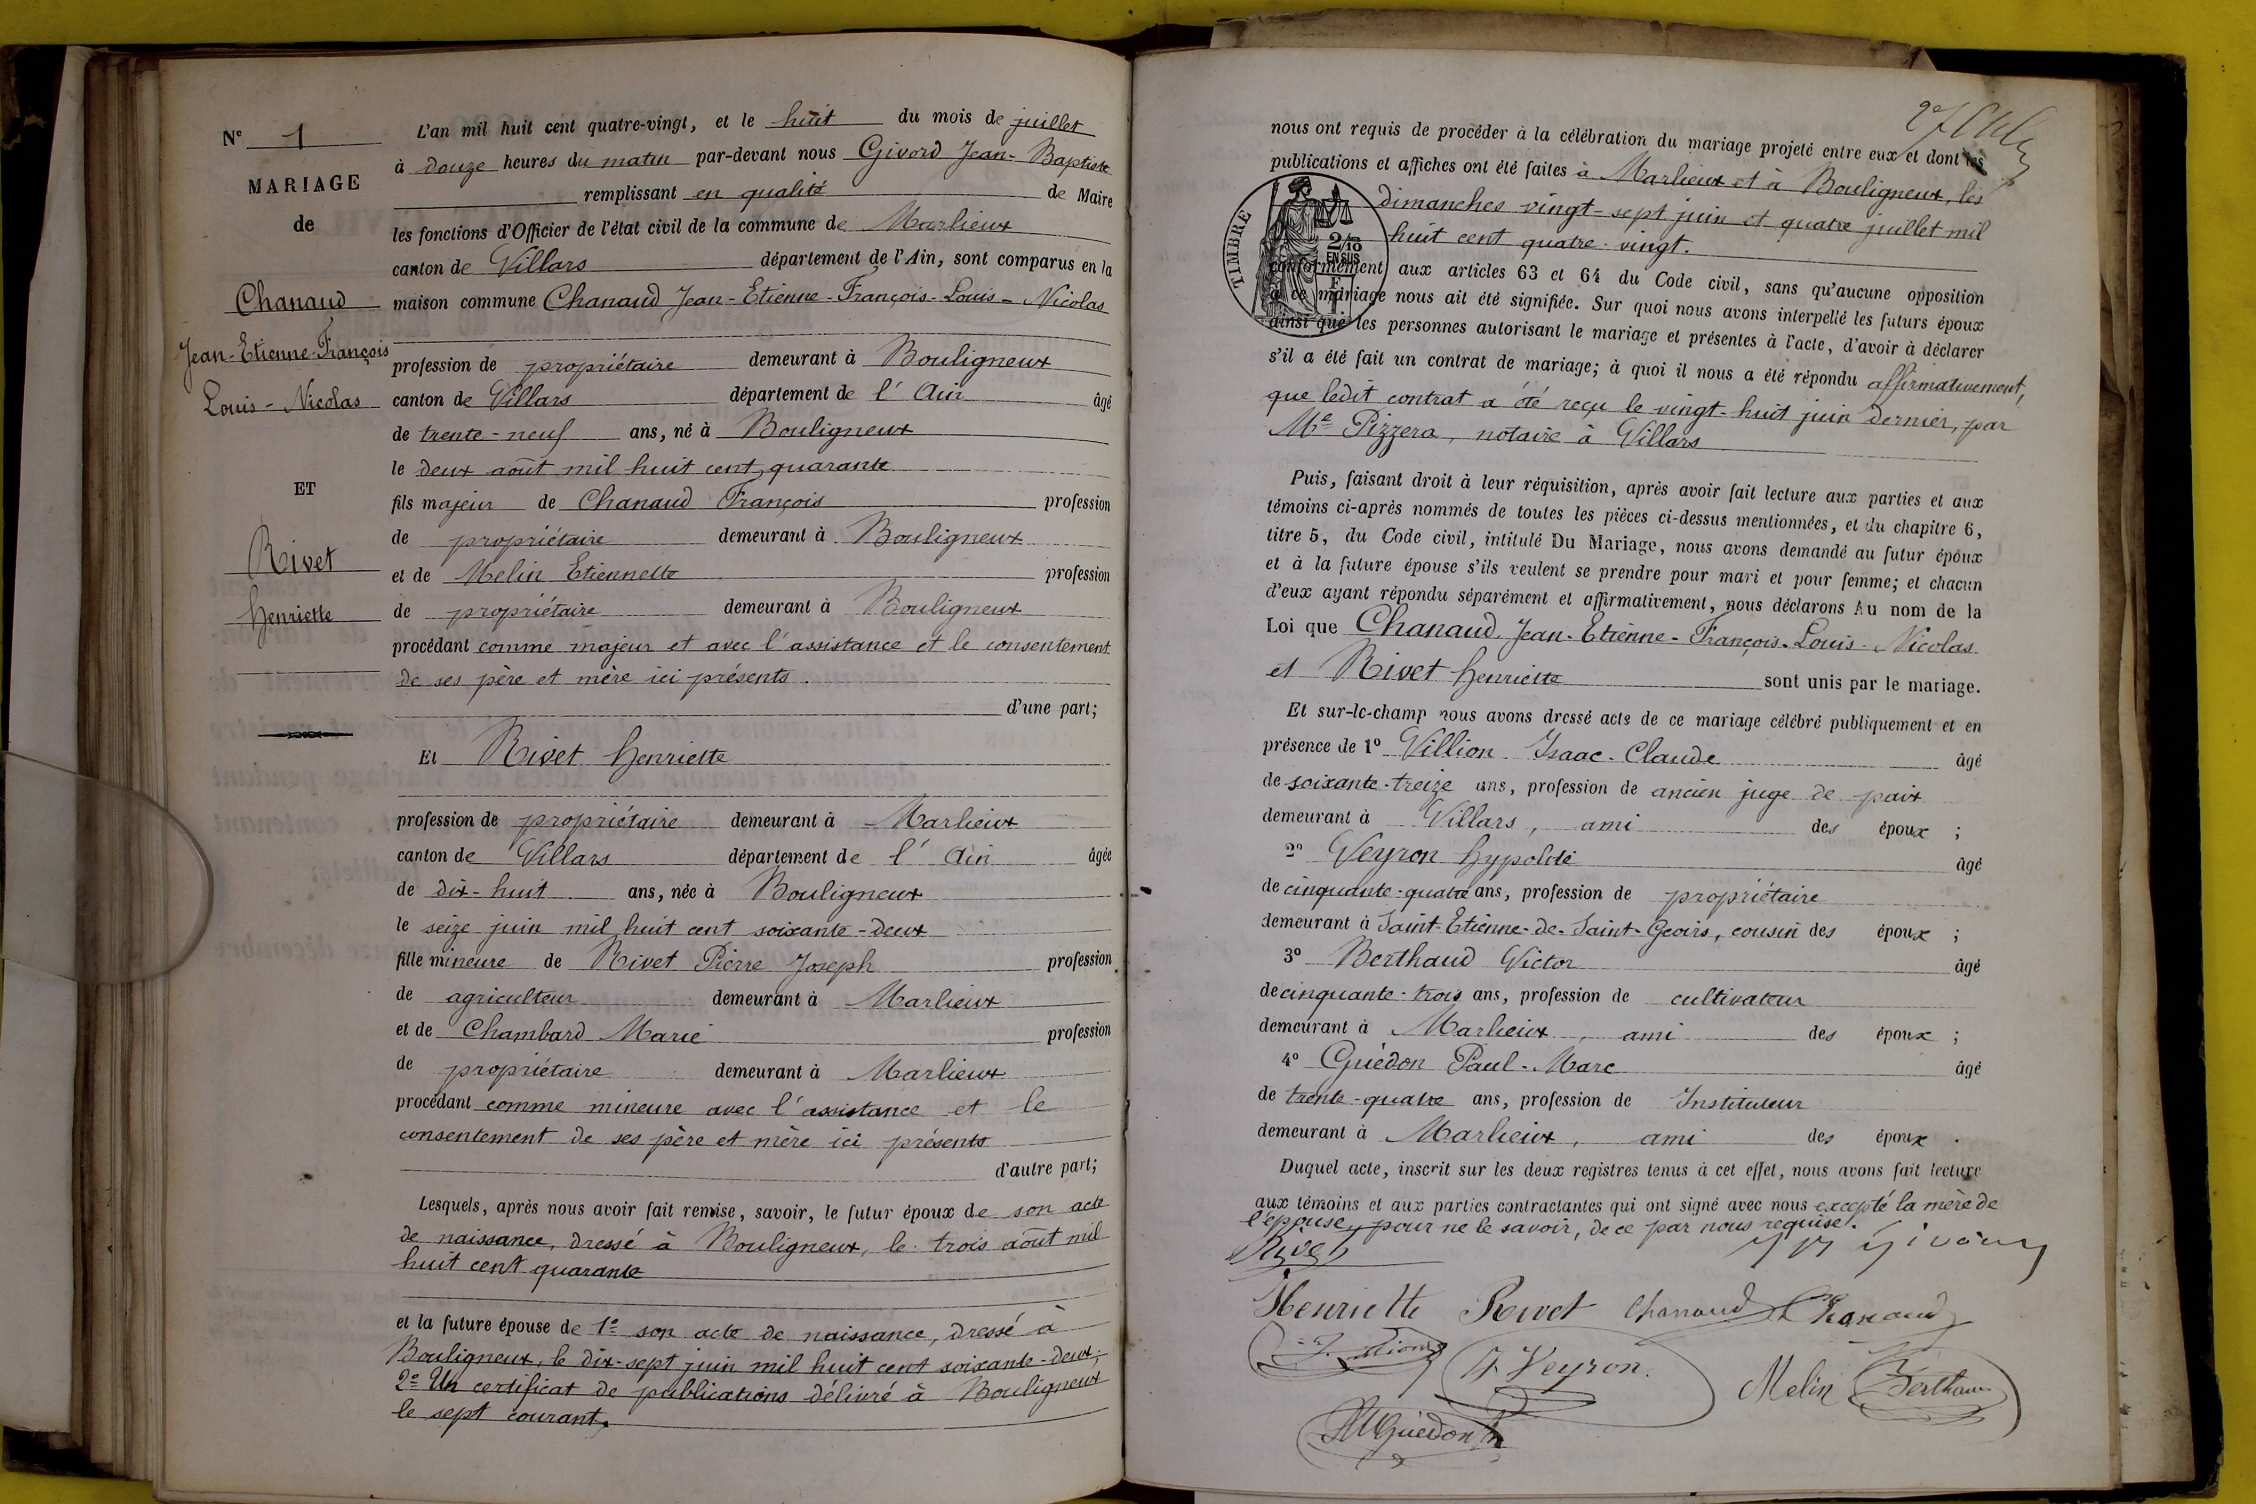 N° 1
MARIAGE
de
Chanaud
Jean-Etienne-François
Louis-Nicolas
ET
Rivet
Henriette
L'an mil huit cent quatre-vingt, et le huit du mois de juillet
à douze heures du matin par-devant nous Givord Jean-Baptiste
remplissant en qualité de Maire
les fonctions d'Officier de l'état civil de la commune de Marlieux
canton de Villars département de l'Ain, sont comparus en la
maison commune Chanaud Jean-Etienne-François-Louis-Nicolas
profession de propriétaire demeurant à Bouligneux
canton de Villars département de l'Ain âgé
de trente-neuf ans, né à Bouligneux
le deux août mil huit cent quarante
fils majeur de Chanaud François profession
de propriétaire demeurant à Bouligneux
et de Melin Etiennette profession
de propriétaire demeurant à Bouligneux
procédant comme majeur et avec l'assistance et le consentement
de ses père et mère ici présents.
d'une part;
Et Rivet Henriette
profession de propriétaire demeurant à Marlieux
canton de Villars département de l'Ain âgée
de dix-huit ans, née à Bouligneux
le seize juin mil huit cent soixante-deux
fille mineure de Rivet Pierre Joseph profession
de agriculteur demeurant à Marlieux
et de Chambard Marie profession
de propriétaire demeurant à Marlieux
procédant comme mineure avec l'assistance et le
consentement de ses père et mère ici présents
d'autre part;
Lesquels, après nous avoir fait remise, savoir, le futur époux de son acte
de naissance, dressé à Bouligneux, le trois août mil
huit cent quarante
et la future épouse de 1° son acte de naissance, dressé à
Bouligneux, le dix-sept juin mil huit cent soixante-deux;
2° Un certificat de publications délivré à Bouligneux
le sept courant.
nous ont requis de procéder à la célébration du mariage projeté entre eux et dont les
publications et affiches ont été faites à Marlieux et à Bouligneux, les
dimanches vingt-sept juin et quatre juillet mil
huit cent quatre-vingt.
TIMBRE
2/10
EN SUS
conformément aux articles 63 et 64 du Code civil, sans qu'aucune opposition
à ce mariage nous ait été signifiée. Sur quoi nous avons interpellé les futurs époux
ainsi que les personnes autorisant le mariage et présentes à l'acte, d'avoir à déclarer
s'il a été fait un contrat de mariage; à quoi il nous a été répondu affirmativement,
que ledit contrat a été reçu le vingt-huit juin dernier, par
Me Pizzera, notaire à Villars
Puis, faisant droit à leur réquisition, après avoir fait lecture aux parties et aux
témoins ci-après nommés de toutes les pièces ci-dessus mentionnées, et du chapitre 6,
titre 5, du Code civil, intitulé Du Mariage, nous avons demandé au futur époux
et à la future épouse s'ils veulent se prendre pour mari et pour femme; et chacun
d'eux ayant répondu séparément et affirmativement, nous déclarons Au nom de la
Loi que Chanaud Jean-Etienne-François-Louis-Nicolas
et Rivet Henriette sont unis par le mariage.
Et sur-le-champ nous avons dressé acte de ce mariage célébré publiquement et en
présence de 1° Villion Isaac-Claude âgé
de soixante-treize ans, profession de ancien juge de paix
demeurant à Villars, ami des époux;
2° Veyron Hypolite âgé
de cinquante-quatre ans, profession de propriétaire
demeurant à Saint-Etienne-de-Saint-Geoirs, cousin des époux;
3° Berthaud Victor âgé
de cinquante-trois ans, profession de cultivateur
demeurant à Marlieux, ami des époux;
4° Guédon Paul-Marc âgé
de trente-quatre ans, profession de Instituteur
demeurant à Marlieux, ami des époux.
Duquel acte, inscrit sur les deux registres tenus à cet effet, nous avons fait lecture
aux témoins et aux parties contractantes qui ont signé avec nous excepté la mère de
l'épouse, pour ne le savoir, de ce par nous requise.
Rivet Givord
Henriette Rivet Chanaud Chanaud
Villion Veyron Melin Berthaud
Guédon